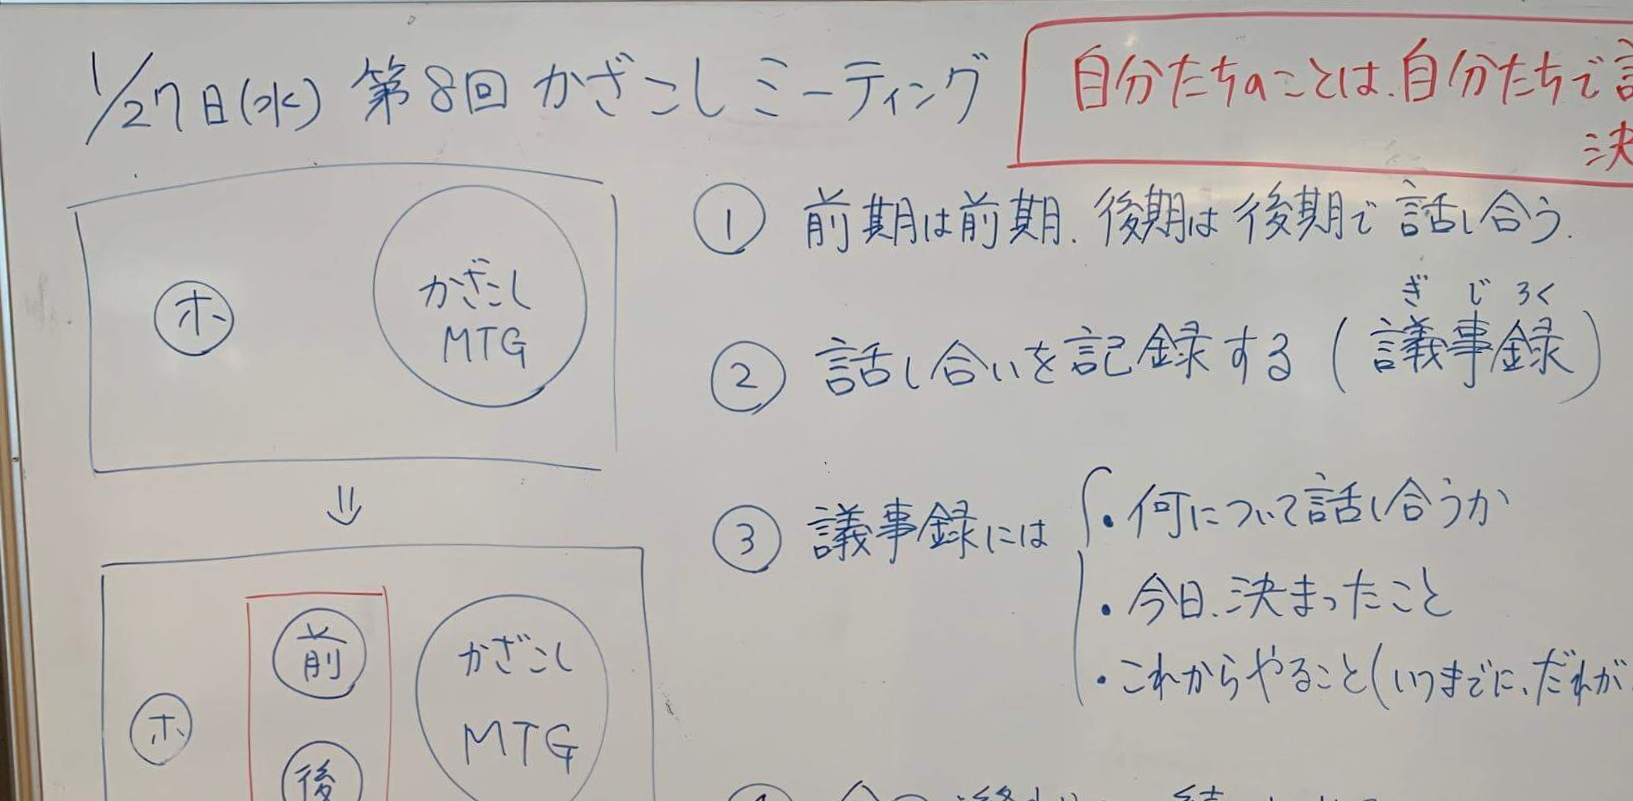 1/27日(水) 第8回 かざこしミーティング
自分たちのことは、自分たちで
決
ホ
かざこし
MTG
⇓
前
後
ホ
かざこし
MTG
① 前期は前期、後期は後期で話し合う.
ぎ じ ろく
② 話し合いを記録する(議事録)
③ 議事録には
・何について話し合うか
・今日、決まったこと
・これからやること(いつまでに、だれが